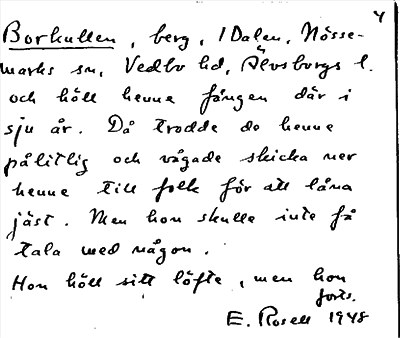 4
Borkullen, berg, i Dalen, Nösse-
marks sn, Vedbo hd, Älvsborgs l.
och höll henne fången där i
sju år. Då trodde de henne
pålitlig och vågade skicka ner
henne till folk för att låna
jäst. Men hon skulle inte få
tala med någon.
Hon höll sitt löfte, men hon
forts.
E. Rosell 1948